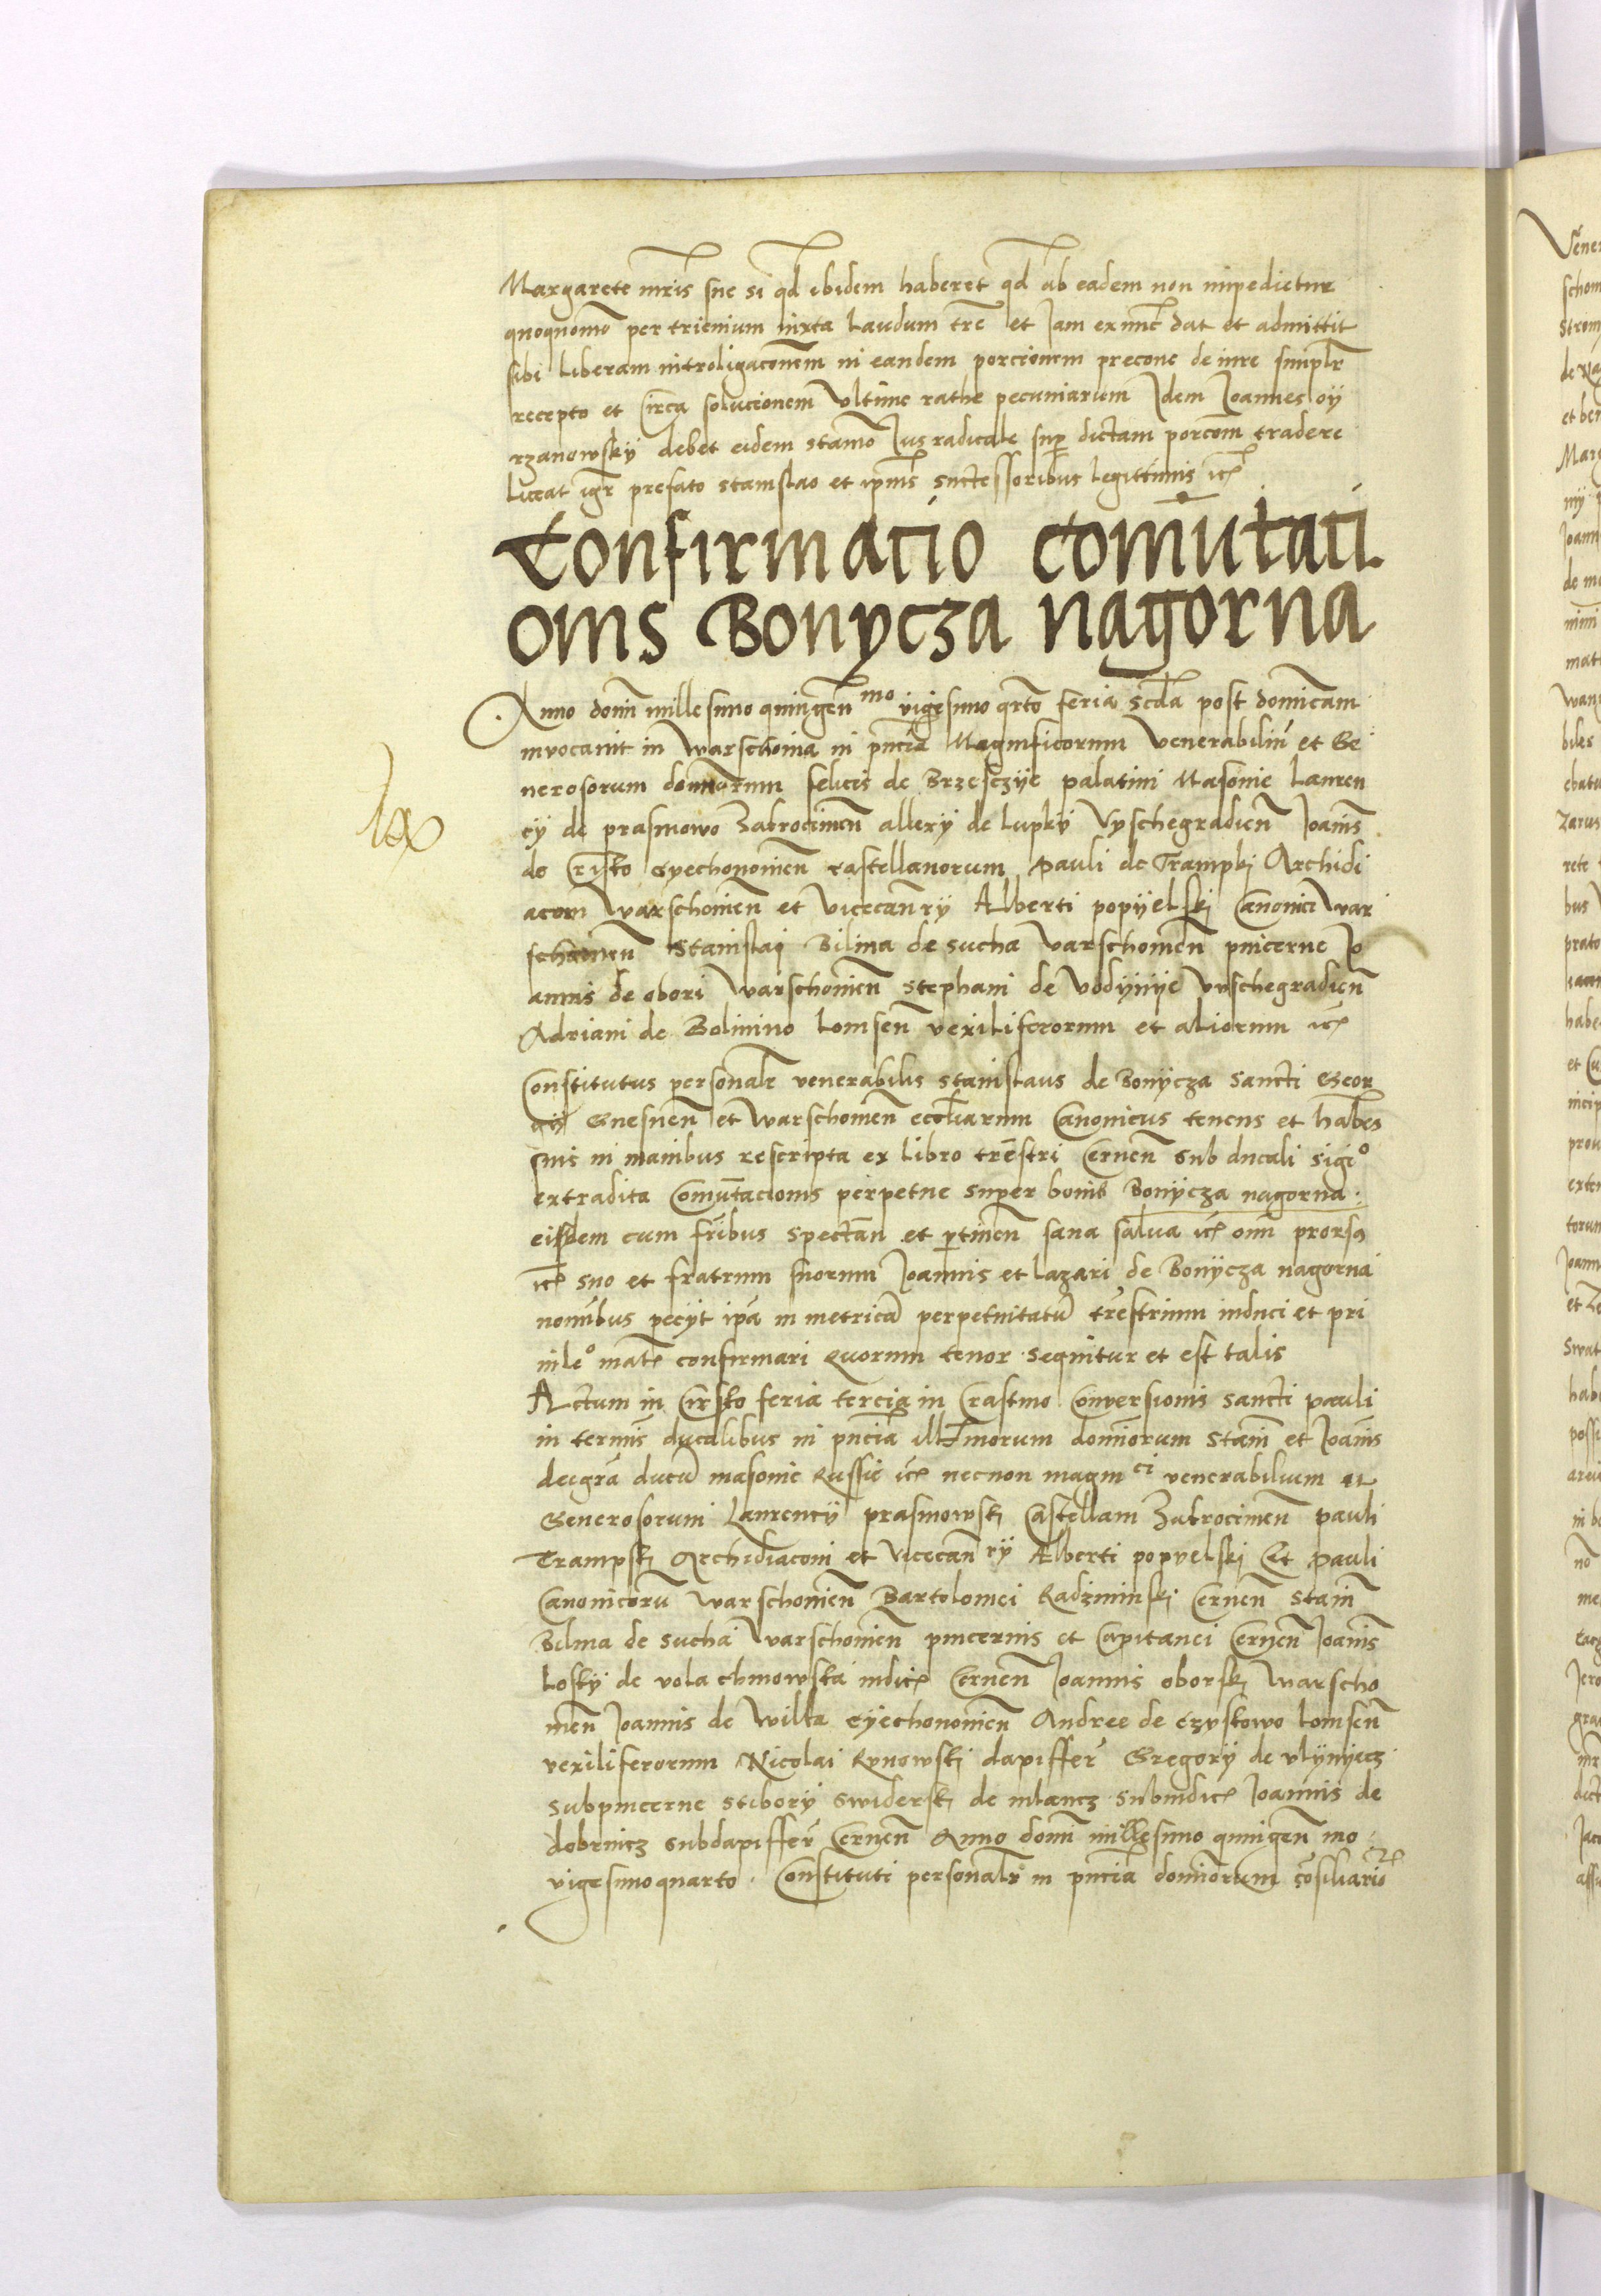 Margarete mris sue si qd ibidem haberet qd ab eadem non impedietur
quoquomo per trienium iuxta Laudum tre et Jam exnunc dat et admittit
sibi Liberam introligaconem in eandem porcionem precone de iure simplr
recepto et Circa solucionem Vltime rathe pecuniarum Idem Joannes oy
rzanowsky debet eidem stanio Jus radicale sup dictam porcom tradere
Liceat igr prefato stanislao et ipius successoribus legittimis etc
Confirmacio comutaci
onis Bonycza nagorna
Anno domi millesimo quingen mo vigesimo qrto feria scda post domicam
Invocavit in Warschouia in pncia Magnificorum Venerabiliu et Ge
nerosorum dominorum felicis de Brzesczye palatini Masouie Lauren
cy de prasmowo Zakrocimen allexy de Lupky Vyschegradien Joanis
de Cirsko Cyechonouien castellanorum Pauli de Trampki Archidi
aconi Warschouien et Vicecanry Alberti popyelski Canonici War
schouien Stanislai Bilina de sucha Varschouien pincerne Jo
annis de obori Warschouien Stephani de Vodynye Vyschegradien
Adriani de Bolmino Lomsen vexiliferorum et aliorum etc
Constitutus personalr venerabilis Stanislaus de Bonycza Sancti Geor
gii Gnesnen et Warschouien eccliarum Canonicus tenens et habes
suis in manibus rescripta ex Libro trestri Cernen sub ducali sigio
extradita Comutacionis perpetue super bonis Bonycza nagorna
eisdem cum fribus spectan et ptinen sana salua etc omi prorsq
etc suo et fratrum suorum Joannis et Lazari de Bonycza nagorna
nomibus pecyt ipa in metrica perpetuitatu trestrium induci et pri
uileo mate confirmari Quorum tenor sequitur et est talis
Actum in Cirsko feria tercia in Crastino Conversionis Sancti pauli
in terminis ducalibus in pncia illmorum dominorum Stani et Joanis
dei gra ducu masouie Russie etc necnon magni ci venerabilium et
Generosorum Laurency prasmowski Castellani Zakrocimen Pauli
Trampski Archidiaconi et Vicecanry Alberti popyelski Et Pauli
Canonicoru Warschouien Bartolomei Radziminski Cernen Stani
Bilina de sucha Varschouien pincernis et Capitanei Cernen Joanis
Losky de vola chinowska iudic Cernen Joannis oborski Warscho
uien Joannis de Wilka Cyechonouien Andree de Czyskowo Lomsen
vexiliferorum Nicolai Rynowski dapiffer Gregory de vlynyecz
subpincerne Stibory Swiderski de mlancz subiudic Joannis de
dobrnicz subdapiffer Cernen Anno domi millesimo quingen mo
vigesimoquarto Constituti personalr in pncia dominorum cosiliario